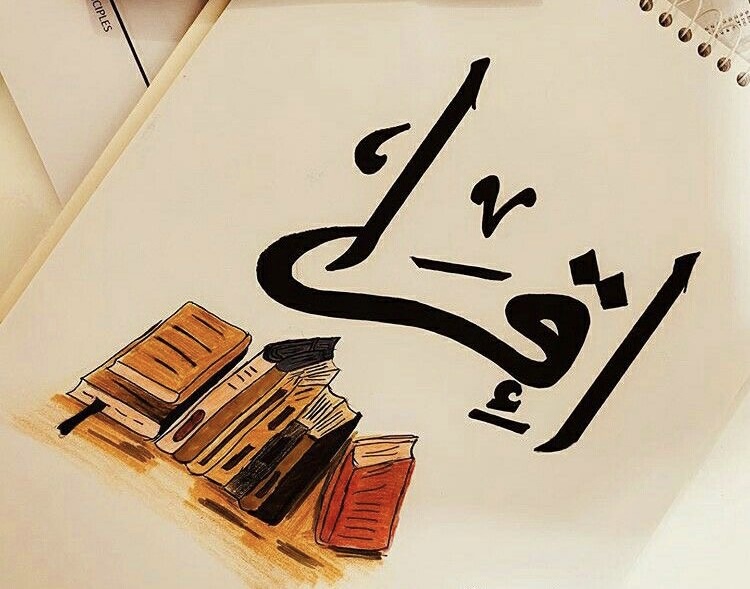 CIPLES
إقرأ